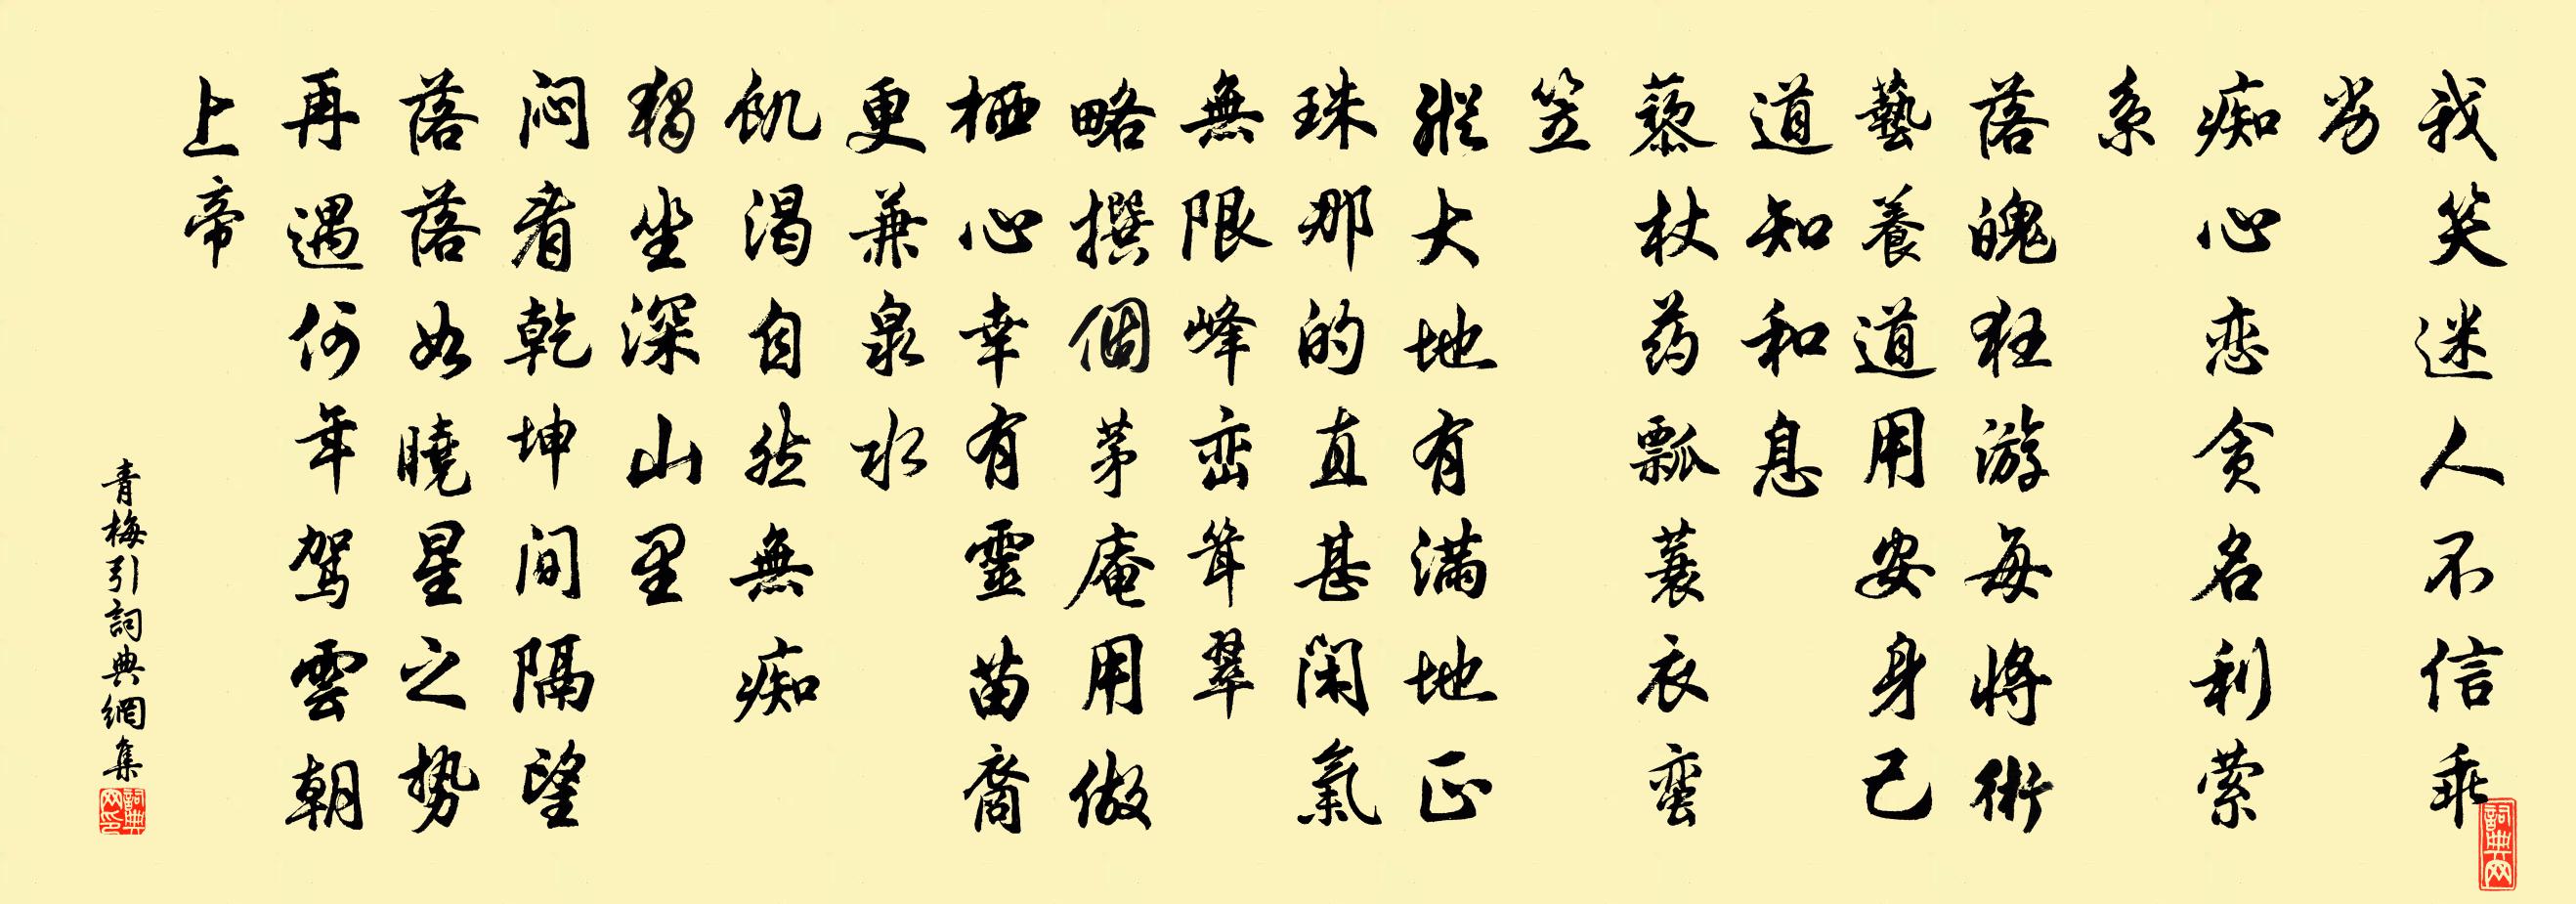 我笑迷人不信乖
劣
痴心恋贪名利萦
系
落魄狂游每将術
藝養道用安身己
道知和息
藜杖药瓢蓑衣蛮
笠
縱大地有满地正
珠那的直甚闲氣
無限峰峦耸翠
略撰個茅庵用做
栖心幸有靈苗裔
更兼泉水
飢渴自然無痴
独坐深山里
闷看乾坤间隔望
落落如曉星之势
再遇何年驾雲朝
上帝
青梅引詞典網集
詞典网
詞典网印